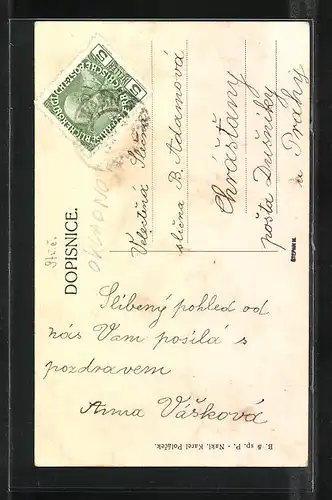 DOPISNICE.
Velectěná Slečna
slečna B. Adamová
Chrášťany
pošta Dušníky
u Prahy
Slíbený pohled od
nás Vam posílá s
pozdravem
Anna Vášková
B. & sp. P. - Nakl. Karel Poláček.
5
5